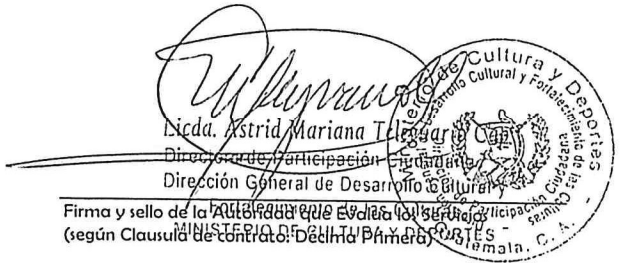 Licda. Astrid Mariana
Directora de Participación Ciudadana
Dirección General de Desarrollo Cultural y
Fortalecimiento de las Culturas
MINISTERIO DE CULTURA Y DEPORTES
Firma y sello de la Autoridad que Evalúa los servicios
(según Clausula de contrato: Decima Primera)
Ministerio de Cultura y Deportes
Desarrollo Cultural y Fortalecimiento de las Culturas
Participación Ciudadana
Guatemala, C. A.